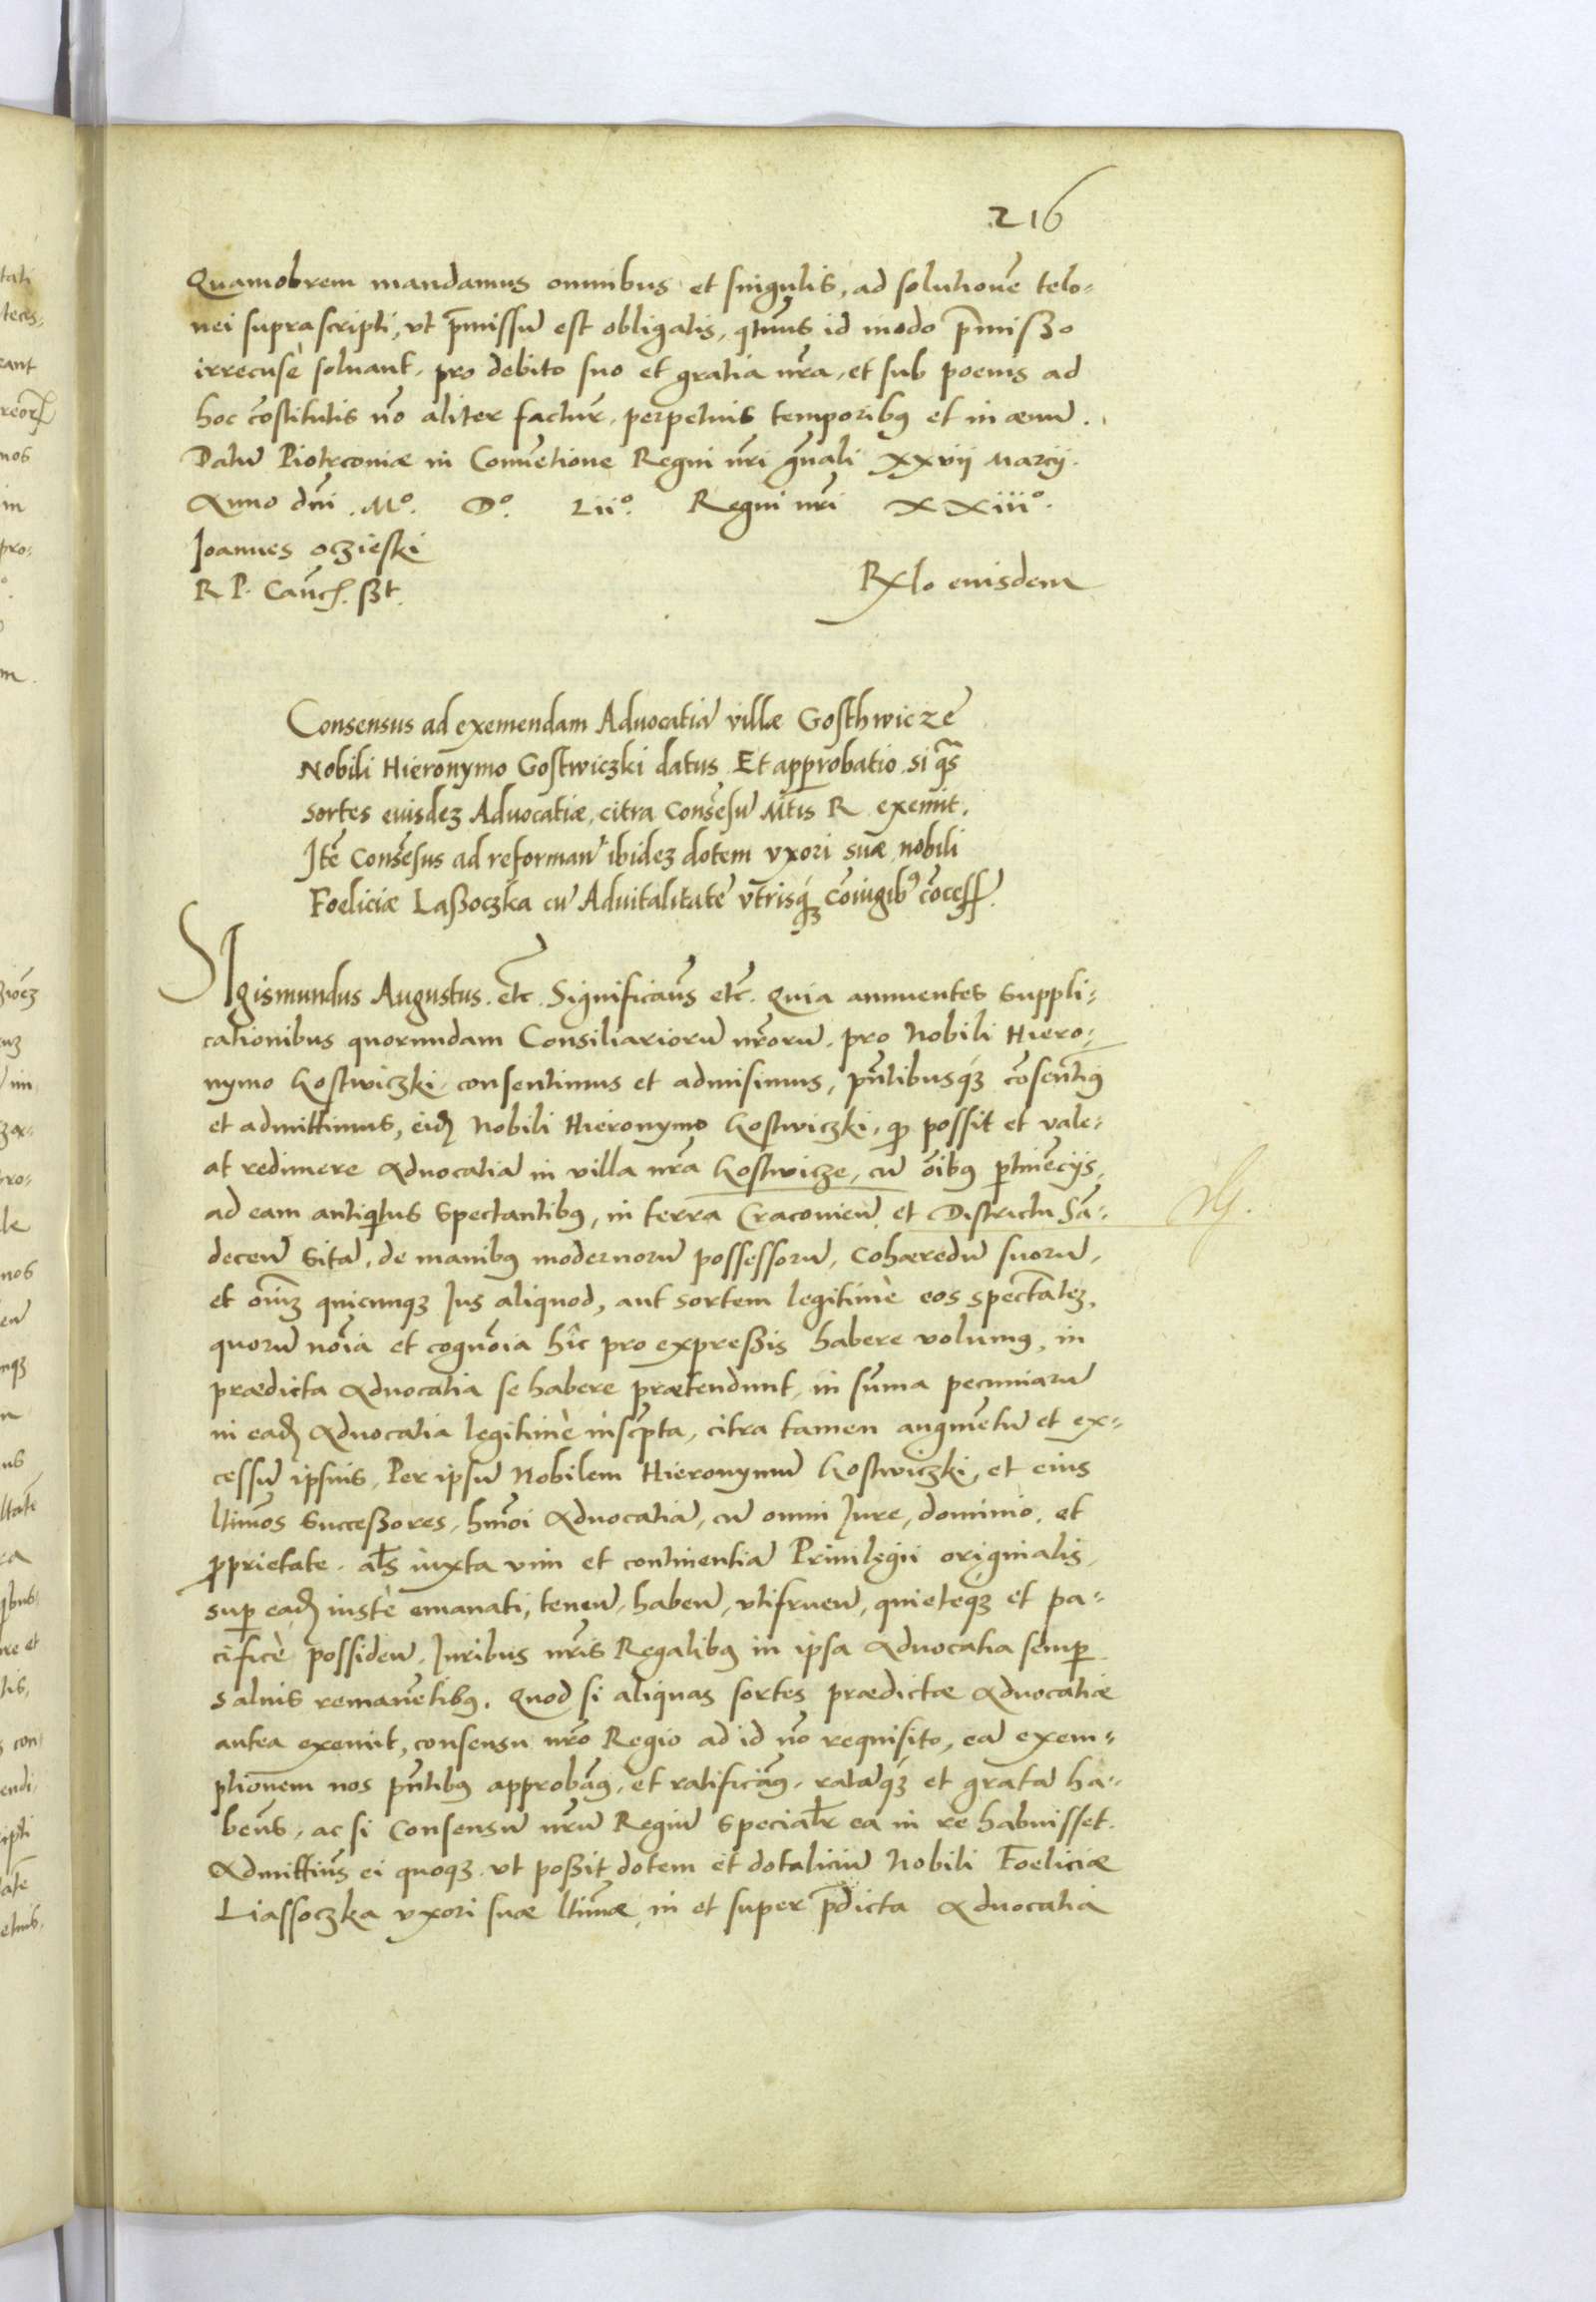 216
Quamobrem mandamus omnibus et singulis, ad solutionē telo-
nei suprascripti, vt p̄missū est obligatis, q̄tnus id modo p̄misso
irrecusè soluant, pro debito suo et gratia nr̄a, et sub poenis ad
hoc cōstitutis nō aliter factur̄, perpetuis temporibꝰ et in æuū.
Datū Piotrconiæ in Conuētione Regni nr̄i gn̄ali XXvij Marcij.
Anno dn̄i .Mº. Dº. Liiº. Regni nr̄i XXiiiº.
Ioannes oczieski
R P. Canc̄. sst.
Rl̄o euisdem
Consensus ad exemendam Aduocatiā villæ Gosthwicze
Nobili Hieronymo Gostwiczki datus Et approbatio si q̄s
sortes euisdeꝫ Aduocatiæ, citra Consēsū Mtis R exemit.
Itē Consēsus ad reforman̄ ibideꝫ dotem vxori suæ nobili
Foeliciæ Lassoczka cū Aduitalitate vtrisqꝫ cōiugibꝰ cōcess.
SIgismundus Augustus. etc. Significam̄s etc. Quia annuentes suppli-
cationibus quorundam Consiliariorū nr̄orū, pro Nobili Hiero-
nymo Gostwiczki consentimus et admisimus, pn̄tibusqꝫ cōsentimꝰ
et admittimus, eidē Nobili Hieronymo Gostwiczki, qꝫ possit et vale-
at redimere Aduocatiā in villa nr̄a Gostwicze, cū oībꝰ ptinēcijs
ad eam antiqitus spectantibꝰ, in terra Cracouien̄ et Districtu Sā-
decen̄ sitā, de manibꝰ modernorū possessorū, cohæredū suorū,
et oim̄ quicunqꝫ Ius aliquod, aut sortem legitimè eos spectāteꝫ,
quorū noīa et cognoīa hîc pro expressis habere volumꝰ, in
prædicta Aduocatia se habere prætendunt, in sūma pecuniarū
in eadē Aduocatia legitimè inscp̄ta, citra tamen augmētū et ex-
cessū ipsius, Per ipsū Nobilem Hieronymū Gostwiczki, et eius
ltimos Successores, hmōi Aduocatiā, cū omni Iure, dominio, et
pprietate als̄ iuxta vim et continentiā Priuilegii originalis,
sup eadē iustè emanati, tenen̄, haben̄, vtifruen̄, quieteqꝫ et pa-
cificè possiden̄, Iuribus nr̄is Regalibꝰ in ipsa Aduocatia semp
saluis remanētibꝰ. Quod si aliquas sortes prædictæ Aduocatiæ
antea exemit, consensu nr̄o Regio ad id nō requisito, eā exem-
ptionem nos pn̄tibꝰ approbāꝰ, et ratificāꝰ, ratāqꝫ et gratā ha-
bem̄s, ac si Consensū nr̄m Regiū specialr̄ ea in re habuisset.
Admittim̄s ei quoqꝫ vt possit dotem et dotaliciū Nobili Foeliciæ
Liassoczka vxori suæ ltimæ in et super p̄dicta Aduocatia